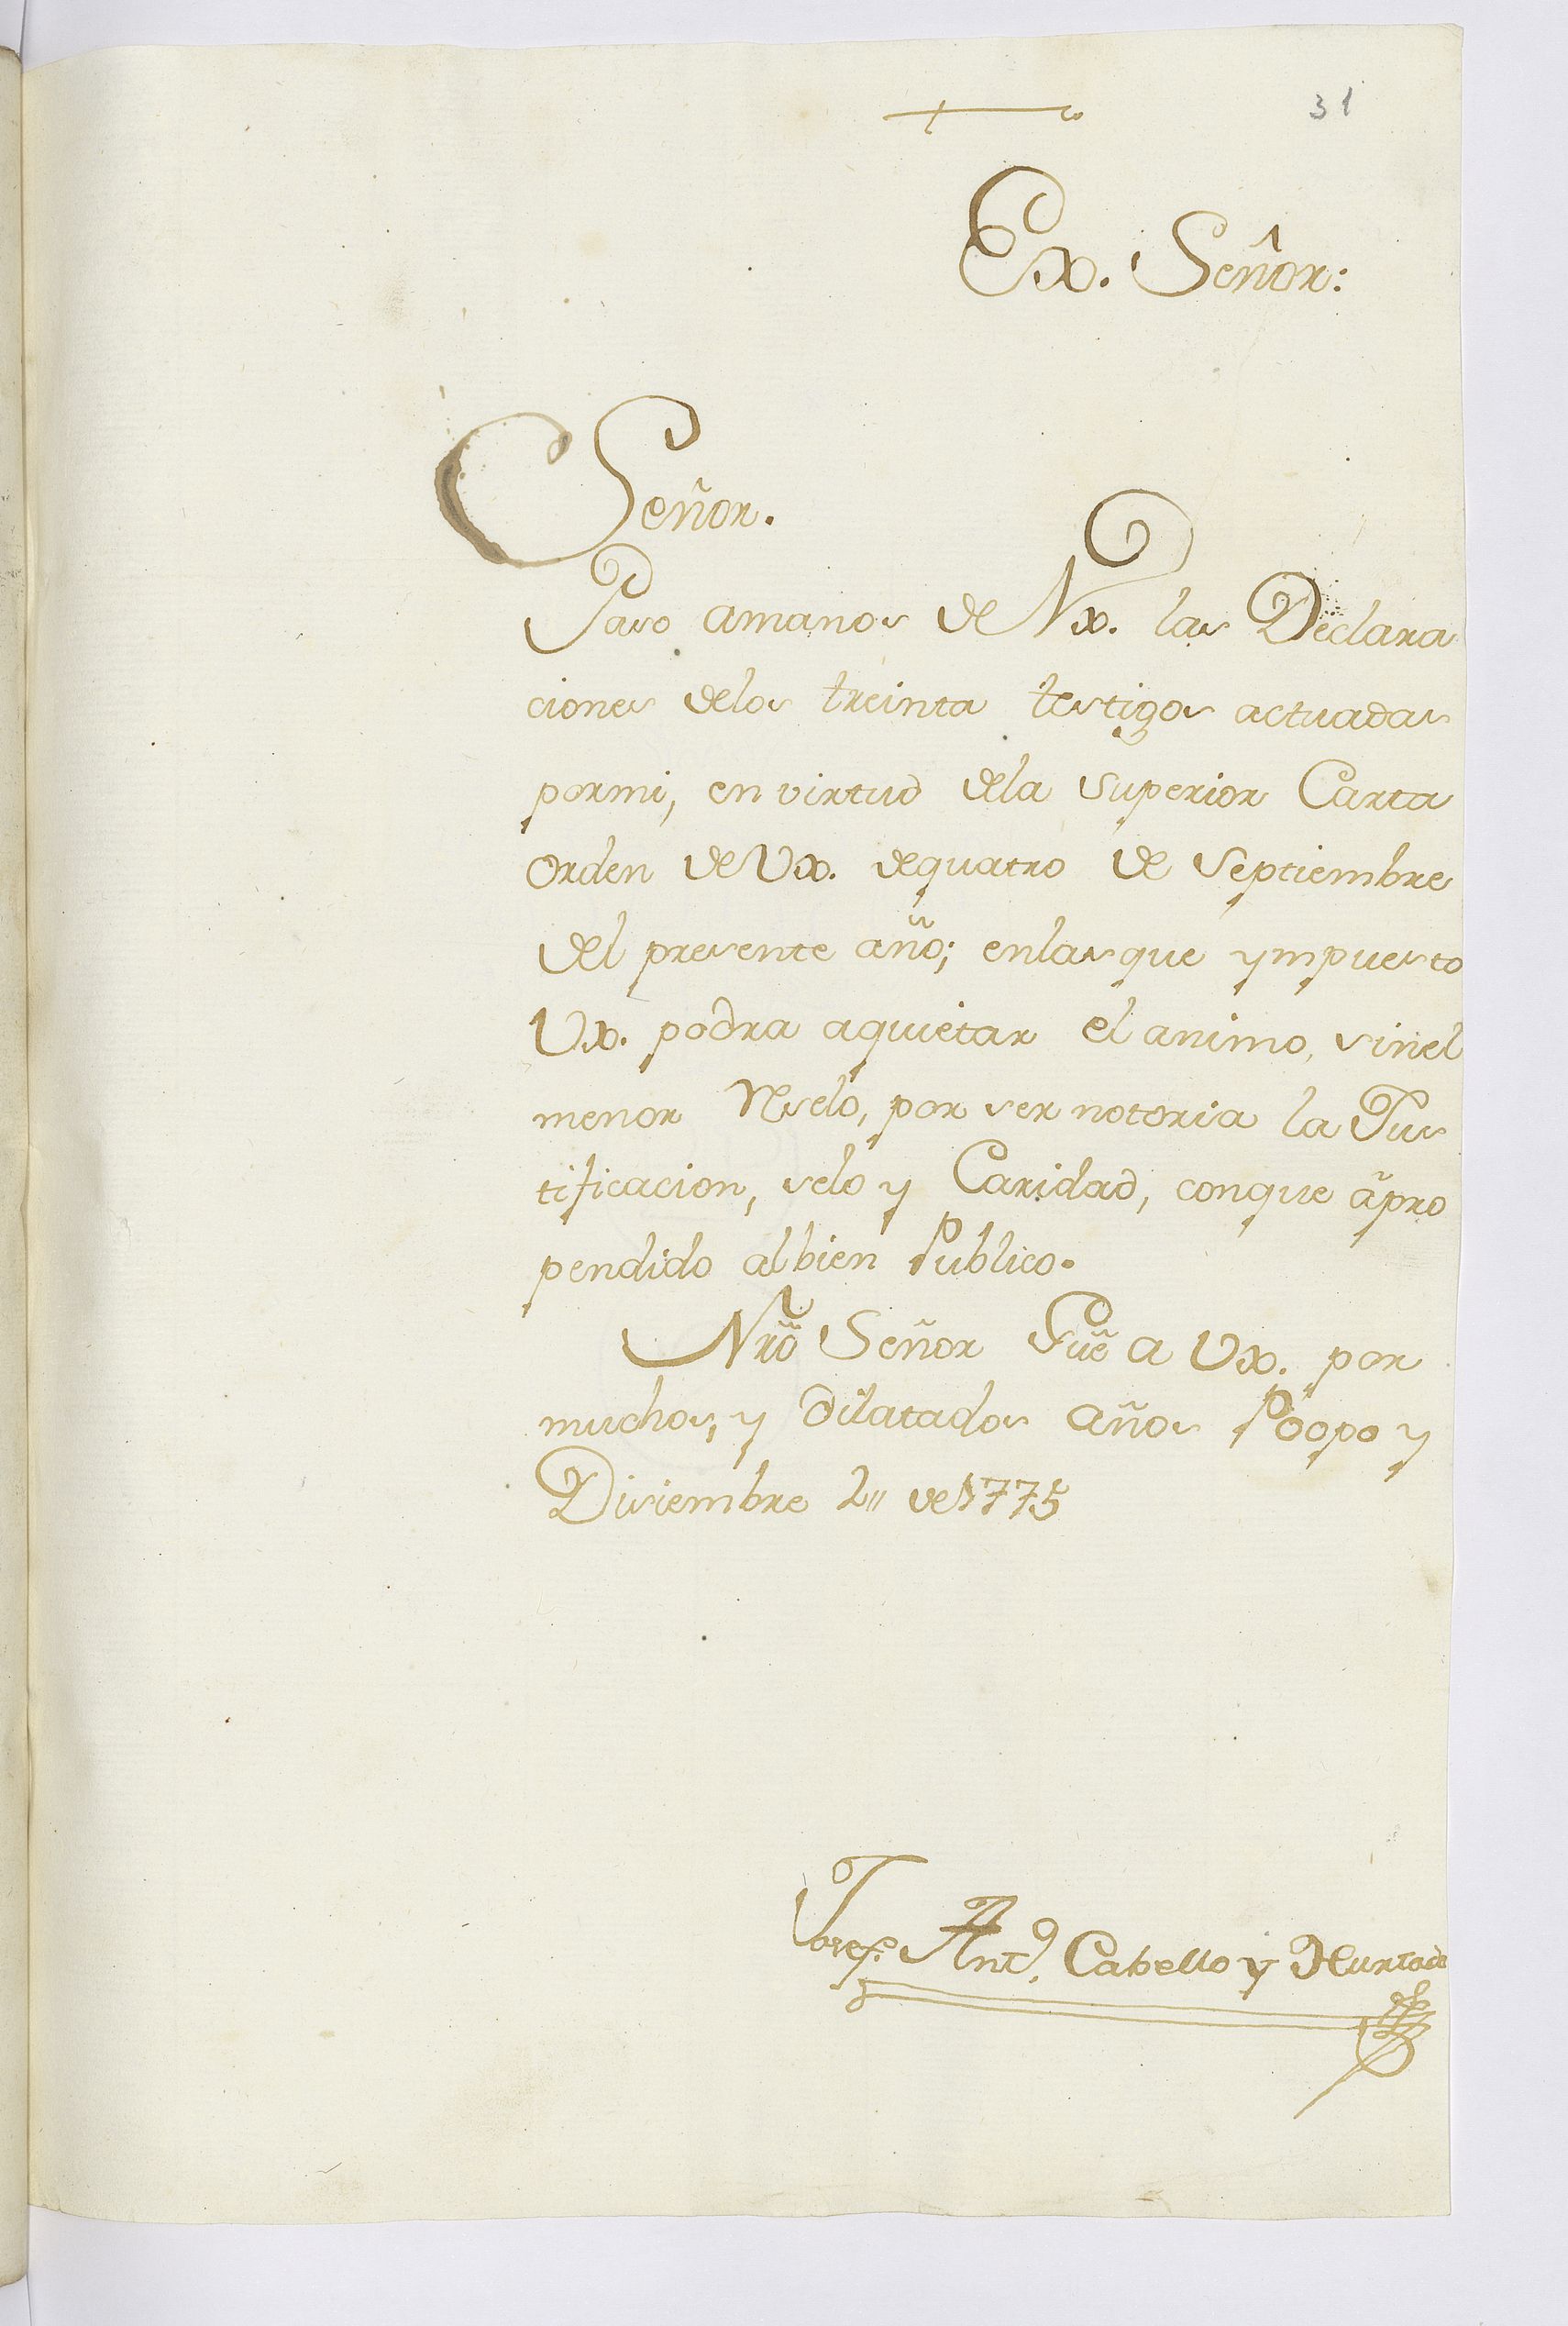 31
Ex. Señor:
Señor.
Paso amanos de Vx. las Declara
ciones delos treinta testigos actuadas
pormi, en virtud dela superior Carta
Orden de Vx. dequatro de Septiembre
del presente año; enlasque ympuesto
Vx. podra aquietar el animo, sinel
menor Reselo, por ser notoria la Jus
tificacion, selo y Caridad, conque ã pro
pendido albien Publico.
Nrõ Señor Gũe a Vx. por
muchos, y dilatados años Poopo y
Disiembre 2,, de 1775
Josef Antº. Cabello y Hurtado